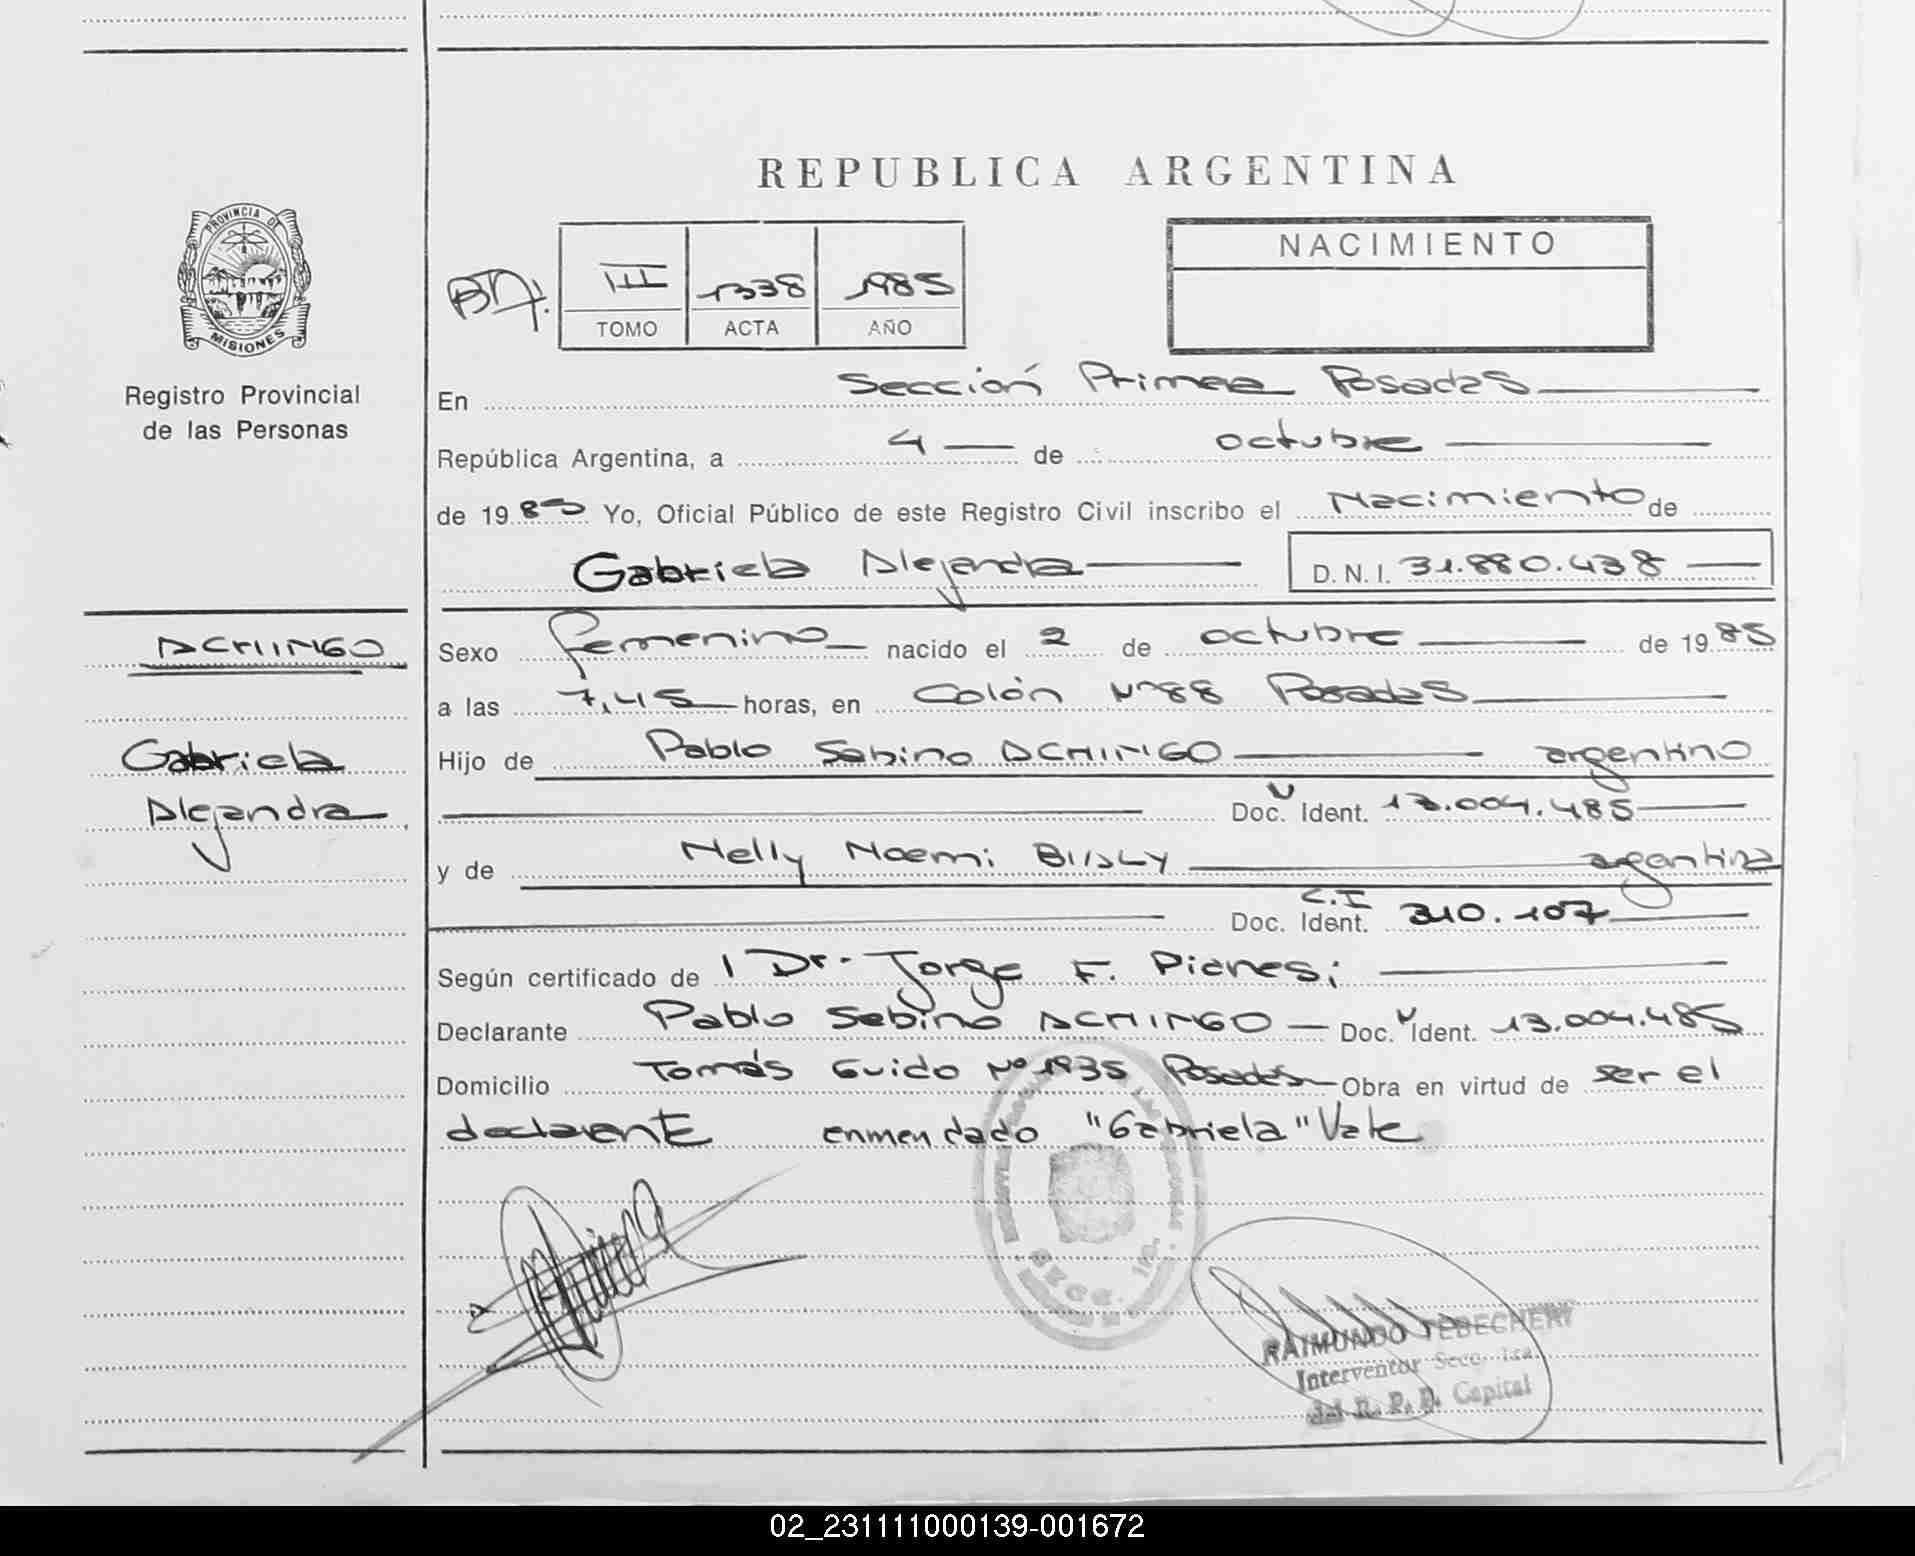 REPUBLICA ARGENTINA
PROVINCIA DE
MISIONES
Registro Provincial
de las Personas
III 1338 1985
TOMO ACTA AÑO
NACIMIENTO
En Sección Primera Posadas
República Argentina, a 4 de octubre
de 1985 Yo, Oficial Público de este Registro Civil inscribo el Nacimiento de
Gabriela Alejandra D.N.I. 31.880.438
ACHINGO
Gabriela
Alejandra
Sexo femenino nacido el 2 de octubre de 1985
a las 7,45 horas, en Colón Nº 88 Posadas
Hijo de Pablo Sabino ACHINGO argentino
Doc. Ident. 13.004.485
y de Nelly Noemi argentina
C.I
Doc. Ident. 310.107
Según certificado de Dr. Jorge F. Pianesi
Declarante Pablo Sabino ACHINGO Doc. Ident. 13.004.485
Domicilio Tomás Guido Nº 1935 Posadas Obra en virtud de ser el
declarante enmendado "Gabriela" Vale
SECC. 1a.
RAIMUNDO TEBECHERY
Interventor Secc. 1ra.
del R. P. P. Capital
02_231111000139-001672